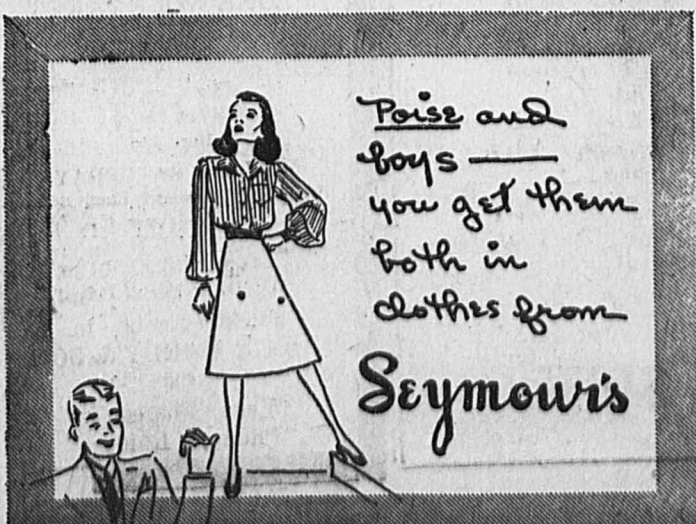 Poise and
boys —
you get them
both in
clothes from
Seymour's